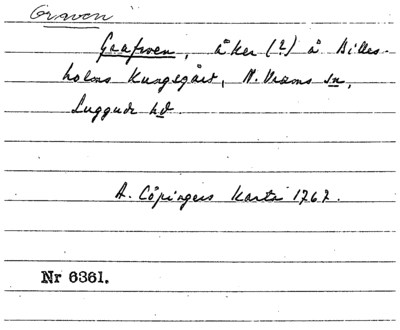 Graven
Graafwen, åker (?) å Billes-
holms Kungsgård, N. Vrams sn,
Luggude hd.
A. Cöpingers karta 1767.
Nr 6361.